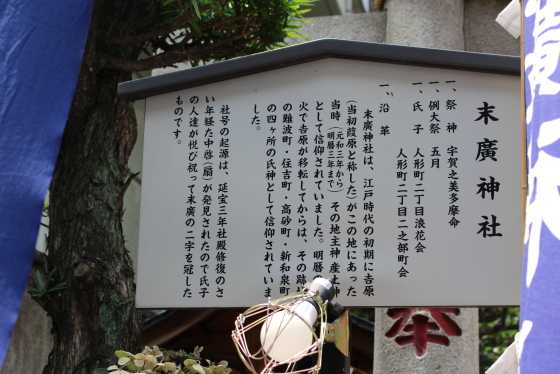 末廣神社
一、祭神 宇賀之美多摩命
一、例大祭 五月
一、氏子 人形町二丁目浪花会
人形町二丁目二之部町会
一、沿革
末廣神社は、江戸時代の初期に吉原
(当初葭原と称した)がこの地にあった
当時(元和三年から明暦三年まで)その地主神産土神
として信仰されていました。明暦の
火で吉原が移転してからは、その跡
の難波町・住吉町・高砂町・新和泉町
の四ヶ所の氏神として信仰されていま
した。
社号の起源は、延宝三年社殿修復のさ
い年経た中啓(扇)が発見されたので氏子
の人達が悦び祝って末廣の二字を冠した
ものです。
奉